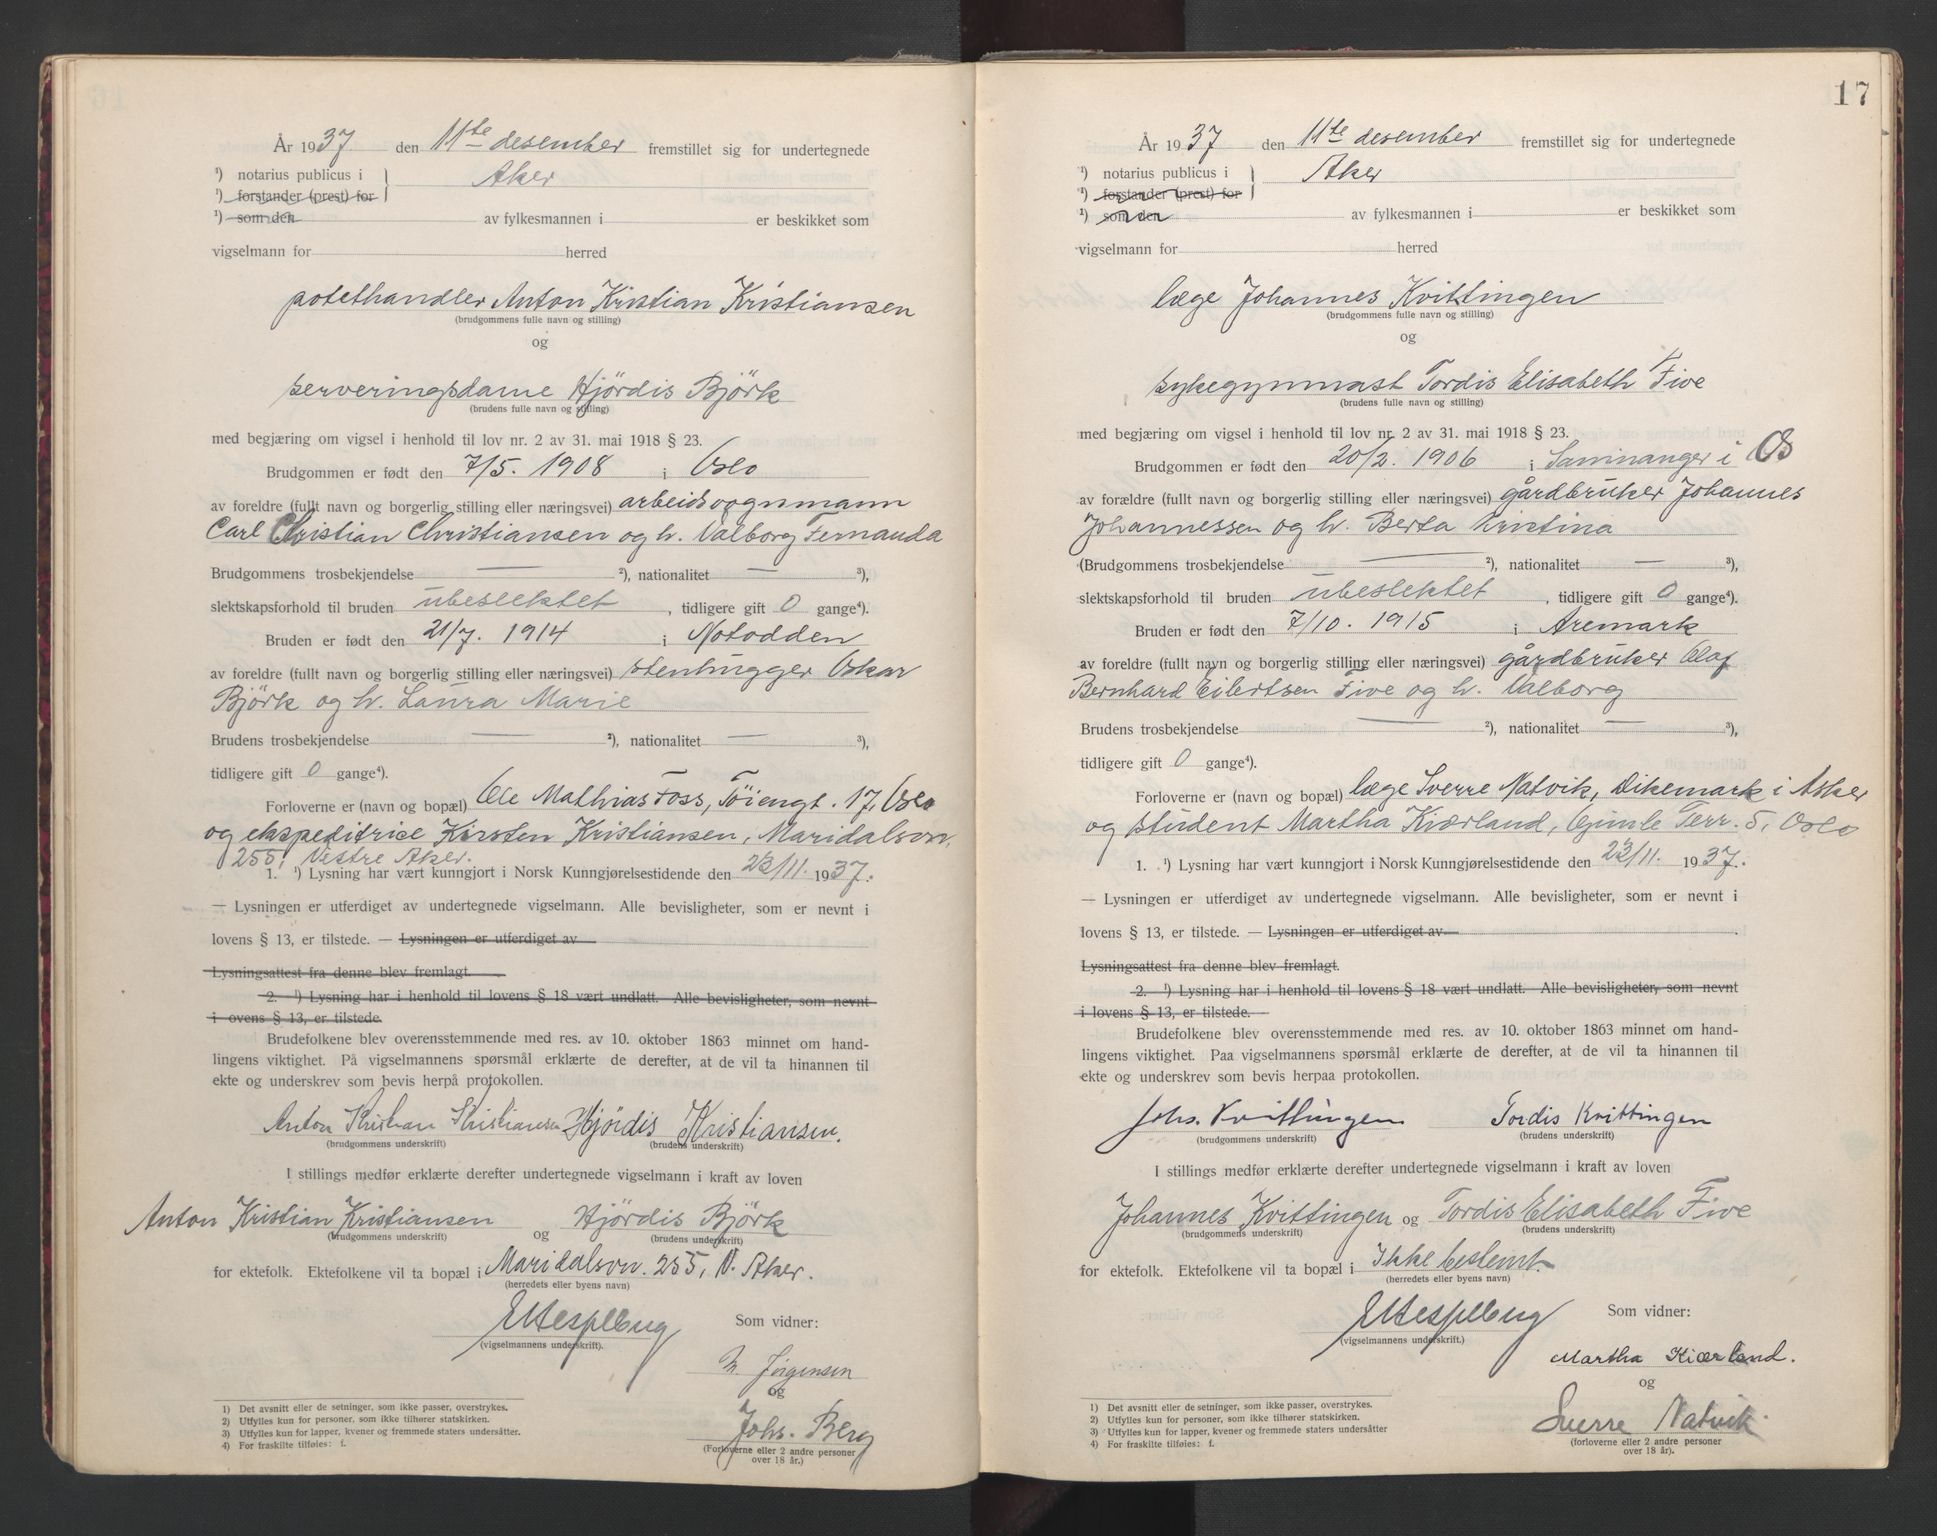 År 1937 den 11te desember fremstillet sig for undertegnede
¹) notarius publicus i } Aker
¹) forstander (prest) for
¹) som den av fylkesmannen i er beskikket som
vigselmann for herred
potethandler Anton Kristian Kristiansen
(brudgommens fulle navn og stilling)
og
serveringsdame Hjördis Björk
(brudens fulle navn og stilling)
med begjæring om vigsel i henhold til lov nr. 2 av 31. mai 1918 § 23.
Brudgommen er født den 7/5. 1908 i Oslo
av foreldre (fullt navn og borgerlig stilling eller næringsvei) arbeidsvognmann
Carl Christian Christiansen og h. Valborg Fernanda
Brudgommens trosbekjendelse — ²), nationalitet — ³),
slektskapsforhold til bruden ubeslektet, tidligere gift 0 gange⁴).
Bruden er født den 21/7. 1914 i Notodden
av foreldre (fullt navn og borgerlig stilling eller næringsvei) stenhugger Oskar
Björk og h. Laura Marie
Brudens trosbekjendelse — ²), nationalitet — ³),
tidligere gift 0 gange⁴).
Forloverne er (navn og bopæl) Ole Mathias Foss, Töiengt. 17, Oslo
og ekspeditrice Kirsten Kristiansen, Maridalsvn.
255, Vestre Aker.
1. ¹) Lysning har vært kunngjort i Norsk Kunngjørelsestidende den 23/11. 1937.
— Lysningen er utferdiget av undertegnede vigselmann. Alle bevisligheter, som er nevnt i
lovens § 13, er tilstede. — Lysningen er utferdiget av
Lysningsattest fra denne blev fremlagt.
2. ¹) Lysning har i henhold til lovens § 18 vært undlatt. Alle bevisligheter, som nevnt
i ovens § 13, er tilstede.
Brudefolkene blev overensstemmende med res. av 10. oktober 1863 minnet om hand-
lingens viktighet. På vigselmannens spørsmål erklærte de derefter, at de vil ta hinannen til
ekte og underskrev som bevis herpå protokollen.
Anton Kristian Kristiansen Hjördis Kristiansen.
(brudgommens underskrift) (brudens underskrift)
I stillings medfør erklærte derefter undertegnede vigselmann i kraft av loven
Anton Kristian Kristiansen og Hjördis Björk
(brudgommens underskrift) (brudens underskrift)
for ektefolk. Ektefolkene vil ta bopæl i Maridalsvn. 255, V. Aker.
(herredets eller byens navn)
Som vidner:
(vigselmannens underskrift).
Jörgensen
og
Johs. Berg
(Forloverne eller 2 andre personer
over 18 år.)
1) Det avsnitt eller de setninger, som ikke passer, overstrykes.
2) Utfylles kun for personer, som ikke tilhører statskirken.
3) Utfylles kun for lapper, kvener og fremmede staters undersåtter.
4) For fraskilte tilføies: f.
17
År 1937 den 11te desember fremstillet sig for undertegnede
¹) notarius publicus i } Aker
¹) forstander (prest) for
¹) som den av fylkesmannen i er beskikket som
vigselmann for herred
læge Johannes Kvittingen
(brudgommens fulle navn og stilling)
og
sykegymnast Tordis Elisabeth Five
(brudens fulle navn og stilling)
med begjæring om vigsel i henhold til lov nr. 2 av 31. mai 1918 § 23.
Brudgommen er født den 20/2. 1906 i Samnanger i Os
av forældre (fullt navn og borgerlig stilling eller næringsvei) gårdbruker Johannes
Johannessen og h. Berta Kristina
(Brudgommens trosbekjendelse — ²), nationalitet — ³),
slektskapsforhold til bruden ubeslektet, tidligere gift 0 gange⁴).
Bruden er født den 7/10. 1915 i Aremark
av foreldre (fullt navn og borgerlig stilling eller næringsvei) gårdbruker Olaf
Bernhard Eilertsen Five og h. Valborg
Brudens trosbekjendelse — ²), nationalitet — ³),
tidligere gift 0 gange⁴).
Forloverne er (navn og bopæl) læge Sverre Natvik, Dikemark i Asker
og student Martha Kiærland, Gimle Terr. 5, Oslo
1. ¹) Lysning har vært kunngjort i Norsk Kunngjørelsestidende den 23/11. 1937.
— Lysningen er utferdiget av undertegnede vigselmann. Alle bevisligheter, som er nevnt i
lovens § 13, er tilstede. — Lysningen er utferdiget av
Lysningsattest fra denne blev fremlagt.
2. ¹) Lysning har i henhold til lovens § 18 vært undlatt. Alle bevisligheter, som nevnt
i lovens § 13, er tilstede.
Brudefolkene blev overensstemmende med res. av 10. oktober 1863 minnet om hand-
lingens viktighet. Paa vigselmannens spørsmål erklærte de derefter, at de vil ta hinannen til
ekte og underskrev som bevis herpaa protokollen.
Johs. Kvittingen Tordis Kvittingen
(brudgommens underskrift) (brudens underskrift)
I stillings medfør erklærte derefter undertegnede vigselmann i kraft av loven
Johannes Kvittingen og Tordis Elisabeth Five
(brudgommens underskrift) (brudens underskrift)
for ektefolk. Ektefolkene vil ta bopæl i Ikke bestemt.
(herredets eller byens navn)
Som vidner:
(vigselmannens underskrift.)
Martha Kiærland.
og
Sverre Natvik.
(forloverne eller 2 andre personer
over 18 år).
1) Det avsnitt eller de setninger, som ikke passer, overstrykes.
2) Utfylles kun for personer, som ikke tilhører statskirken.
3) Utfylles kun for lapper, kvener og fremmede staters undersåtter
4) For fraskilte tilføies: f.